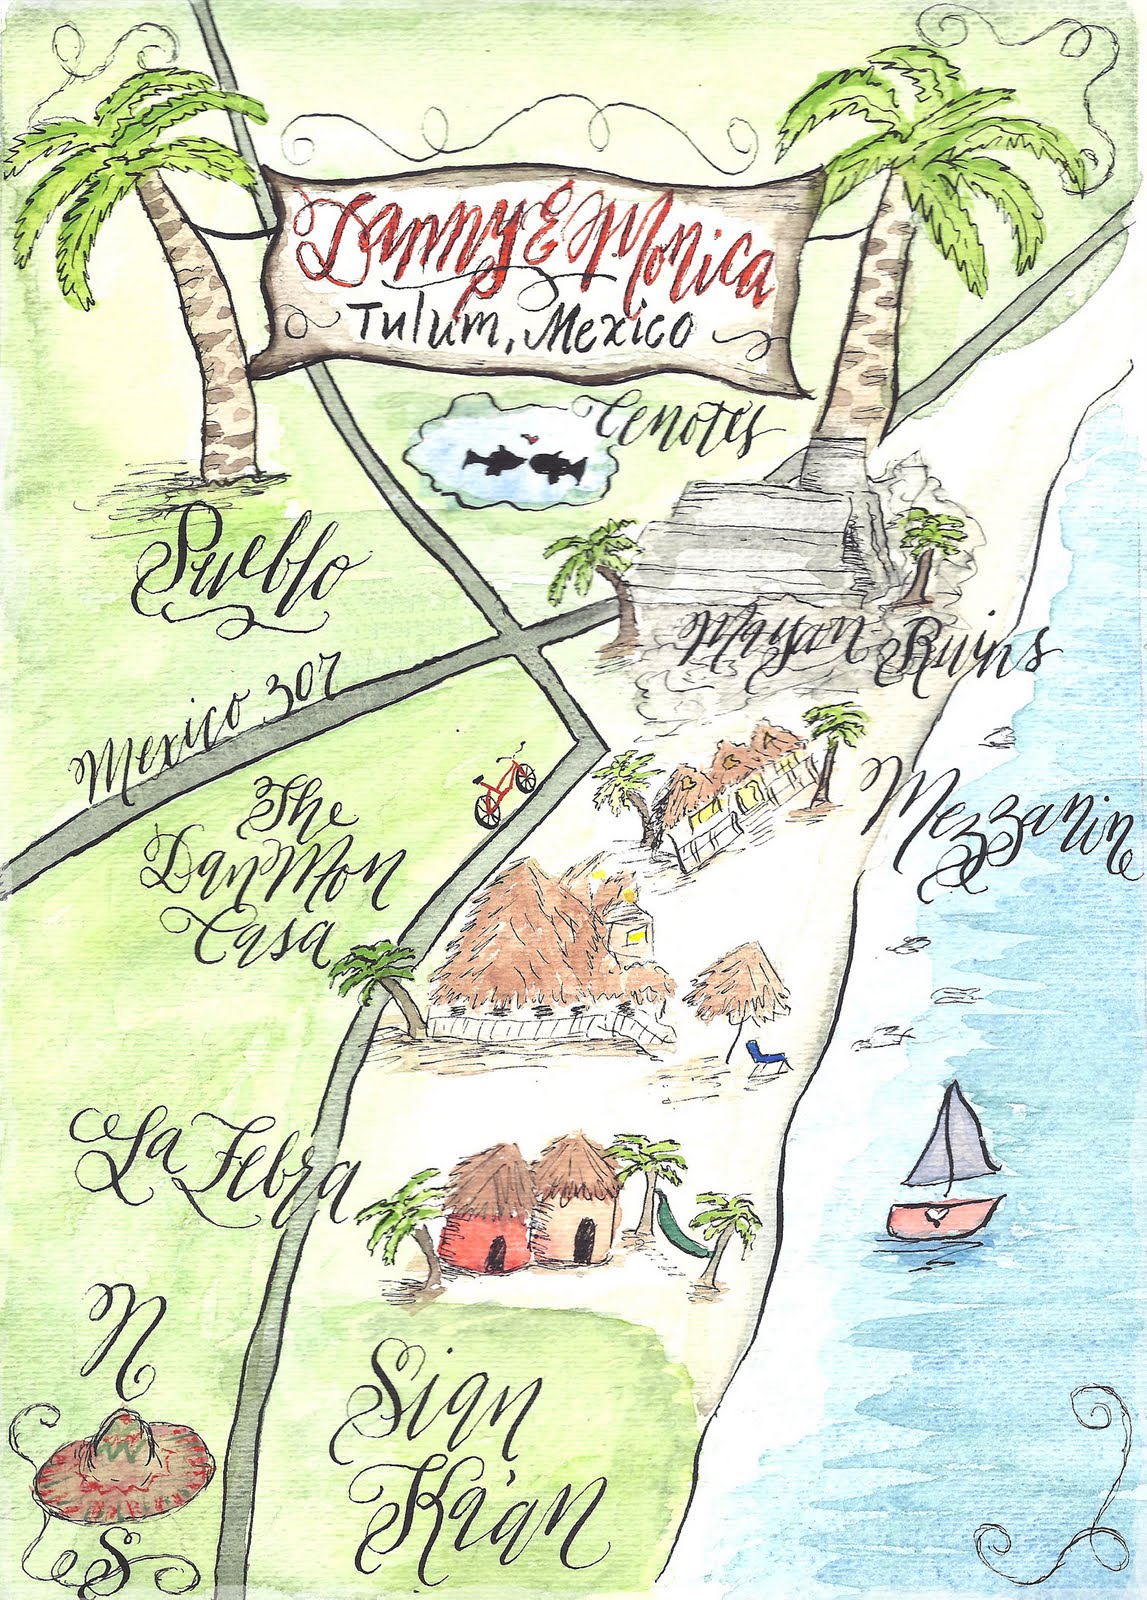 Danny & Monica
Tulum, Mexico
Cenotes
Pueblo
Mayan Ruins
Mexico 307
Mezzanine
The
DanMon
Casa
La Zebra
N
Sian
Ka'an
S